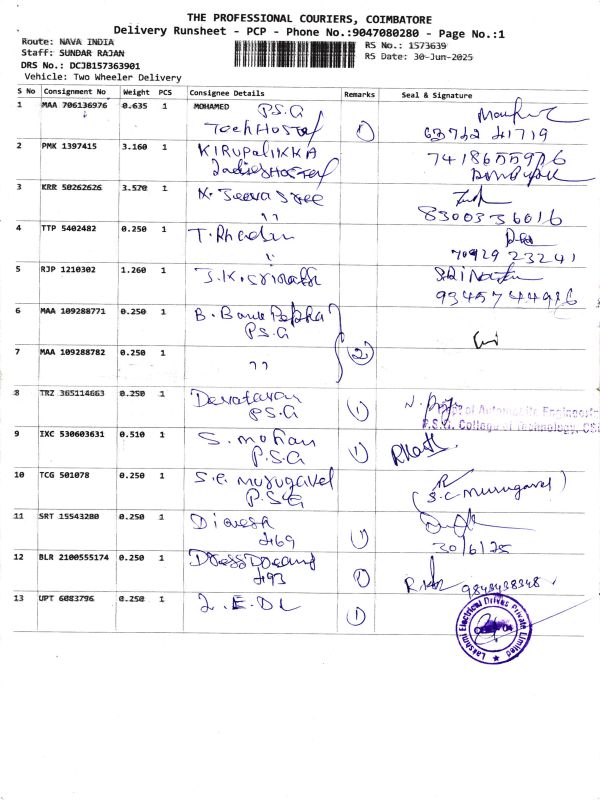 THE PROFESSIONAL COURIERS, COIMBATORE
Delivery Runsheet - PCP - Phone No.:9047080280 - Page No.:1
Route: NAVA INDIA
RS No.: 1573639
Staff: SUNDAR RAJAN
RS Date: 30-Jun-2025
DRS No.: DCJB157363901
Vehicle: Two Wheeler Delivery
S No Consignment No Weight PCS Consignee Details Remarks Seal & Signature
1 MAA 706136976 0.635 1 MOHAMED P.S.G
Tech Hostel 1 63742 41719
2 PMK 1397415 3.160 1 KIRUPALIKKA 7418655976
Ladies Hostel
3 KRR 50262626 3.570 1 K. Jeeva Sree
" 8300336016
4 TTP 5402482 0.250 1 T.
" 70929 23241
5 RJP 1210302 1.260 1 J.K. Srinath
9345744916
6 MAA 109288771 0.250 1 B.
P.S.G
7 MAA 109288782 0.250 1 " 2
8 TRZ 365114663 0.250 1 Devatavan
P.S.G 1
of Automobile Engineering
P.S.G. College of Technology, CB
9 IXC 530603631 0.510 1 S. mohan
P.S.G 1
10 TCG 501078 0.250 1 S.C. murugavel
P.S.G (S.C. Murugavel)
11 SRT 15543280 0.250 1 Dinesh
469 1 30/6/25
12 BLR 2100555174 0.250 1
493 1
13 UPT 6083796 0.250 1 L. E. D L
1
Lakshmi Electrical Drives Private Limited